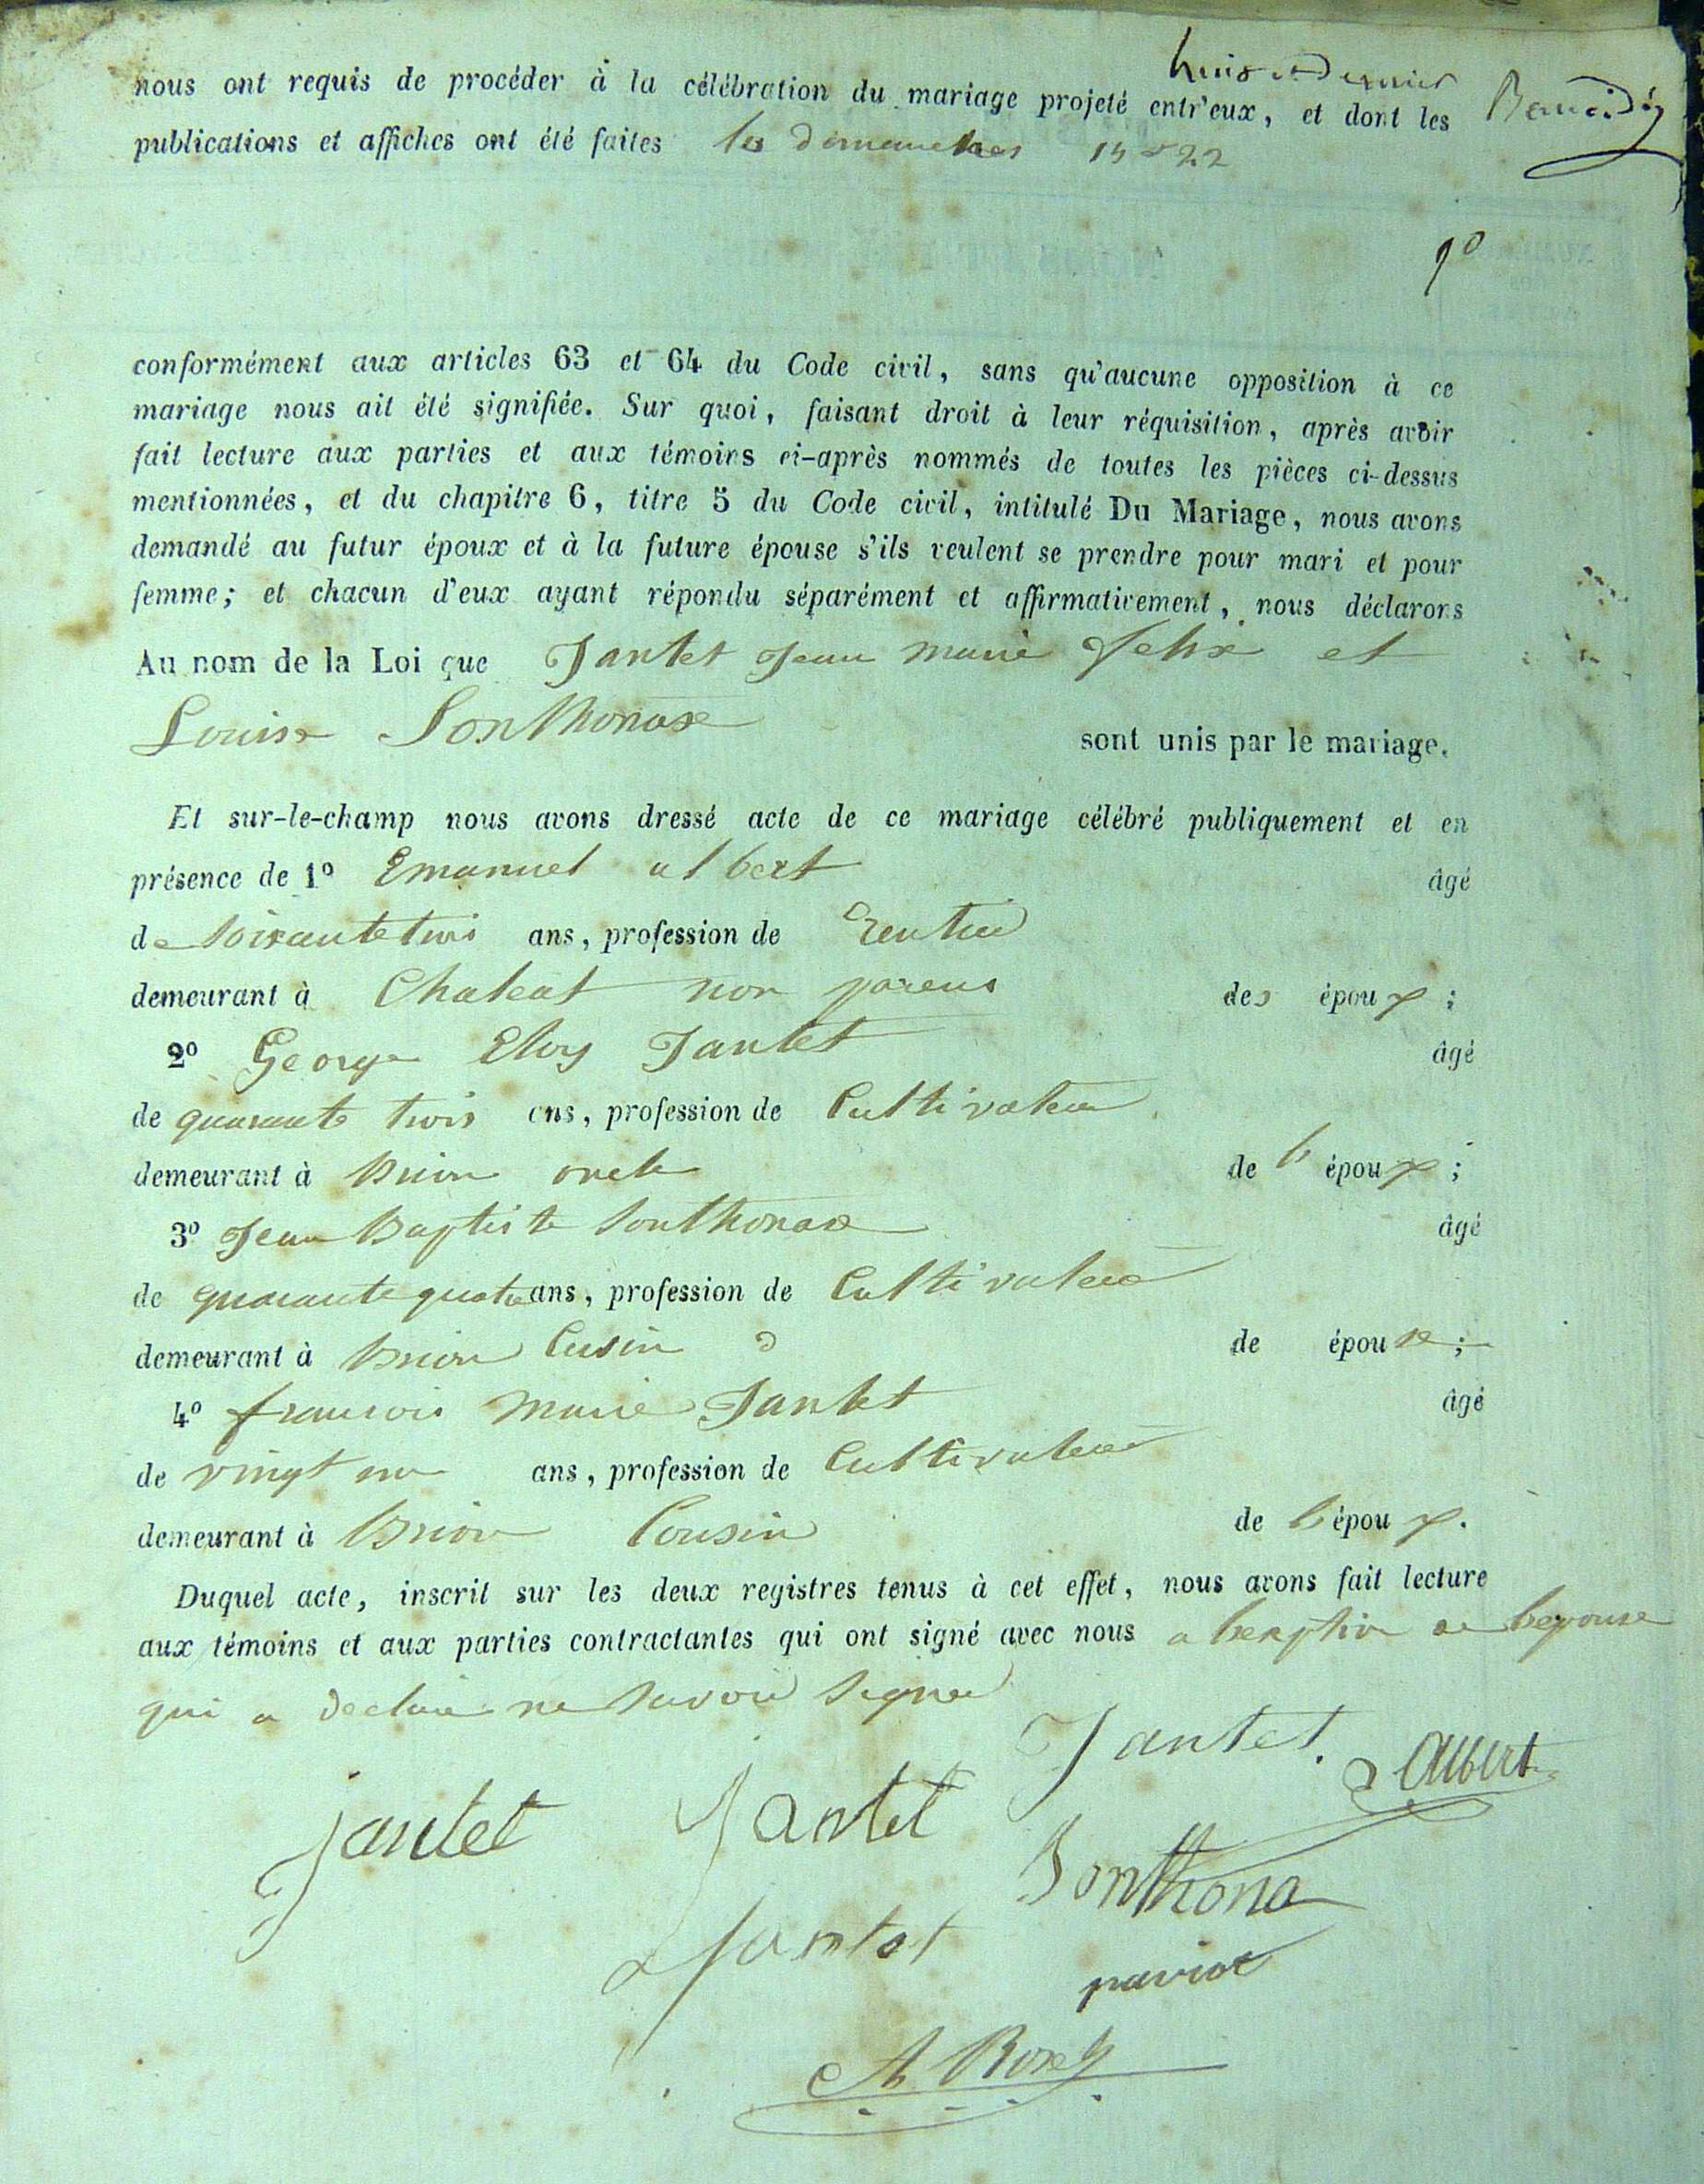 nous ont requis de procéder à la célébration du mariage projeté entr'eux, et dont les
publications et affiches ont été faites les dimanches 15 & 22
conformément aux articles 63 et 64 du Code civil, sans qu'aucune opposition à ce
mariage nous ait été signifiée. Sur quoi, faisant droit à leur réquisition, après avoir
fait lecture aux parties et aux témoins ci-après nommés de toutes les pièces ci-dessus
mentionnées, et du chapitre 6, titre 5 du Code civil, intitulé Du Mariage, nous avons
demandé au futur époux et à la future épouse s'ils veulent se prendre pour mari et pour
femme; et chacun d'eux ayant répondu séparément et affirmativement, nous déclarons
Au nom de la Loi que Jantet Jean Marie Felix et
Louise Sonthonax sont unis par le mariage.
Et sur-le-champ nous avons dressé acte de ce mariage célébré publiquement et en
présence de 1º Emanuel albert âgé
de soixante trois ans, profession de Rentier
demeurant à Chateat non parens des époux;
2º George Eloy Jantet âgé
de quarante trois ans, profession de Cultivateur
demeurant à Brion oncle de l'époux;
3º Jean Baptiste Sonthonax âgé
de quarante quatre ans, profession de Cultivateur
demeurant à Brion Cusin de épouse;
4º francois Marie Jantet âgé
de vingt un ans, profession de Cultivateur
demeurant à Brion Cousin de l'époux.
Duquel acte, inscrit sur les deux registres tenus à cet effet, nous avons fait lecture
aux témoins et aux parties contractantes qui ont signé avec nous a lexeption de lepouse
qui a declaré ne savoir signer
Jantet. Albert
Jantet Jantet
Sonthona
Jantet
paviot